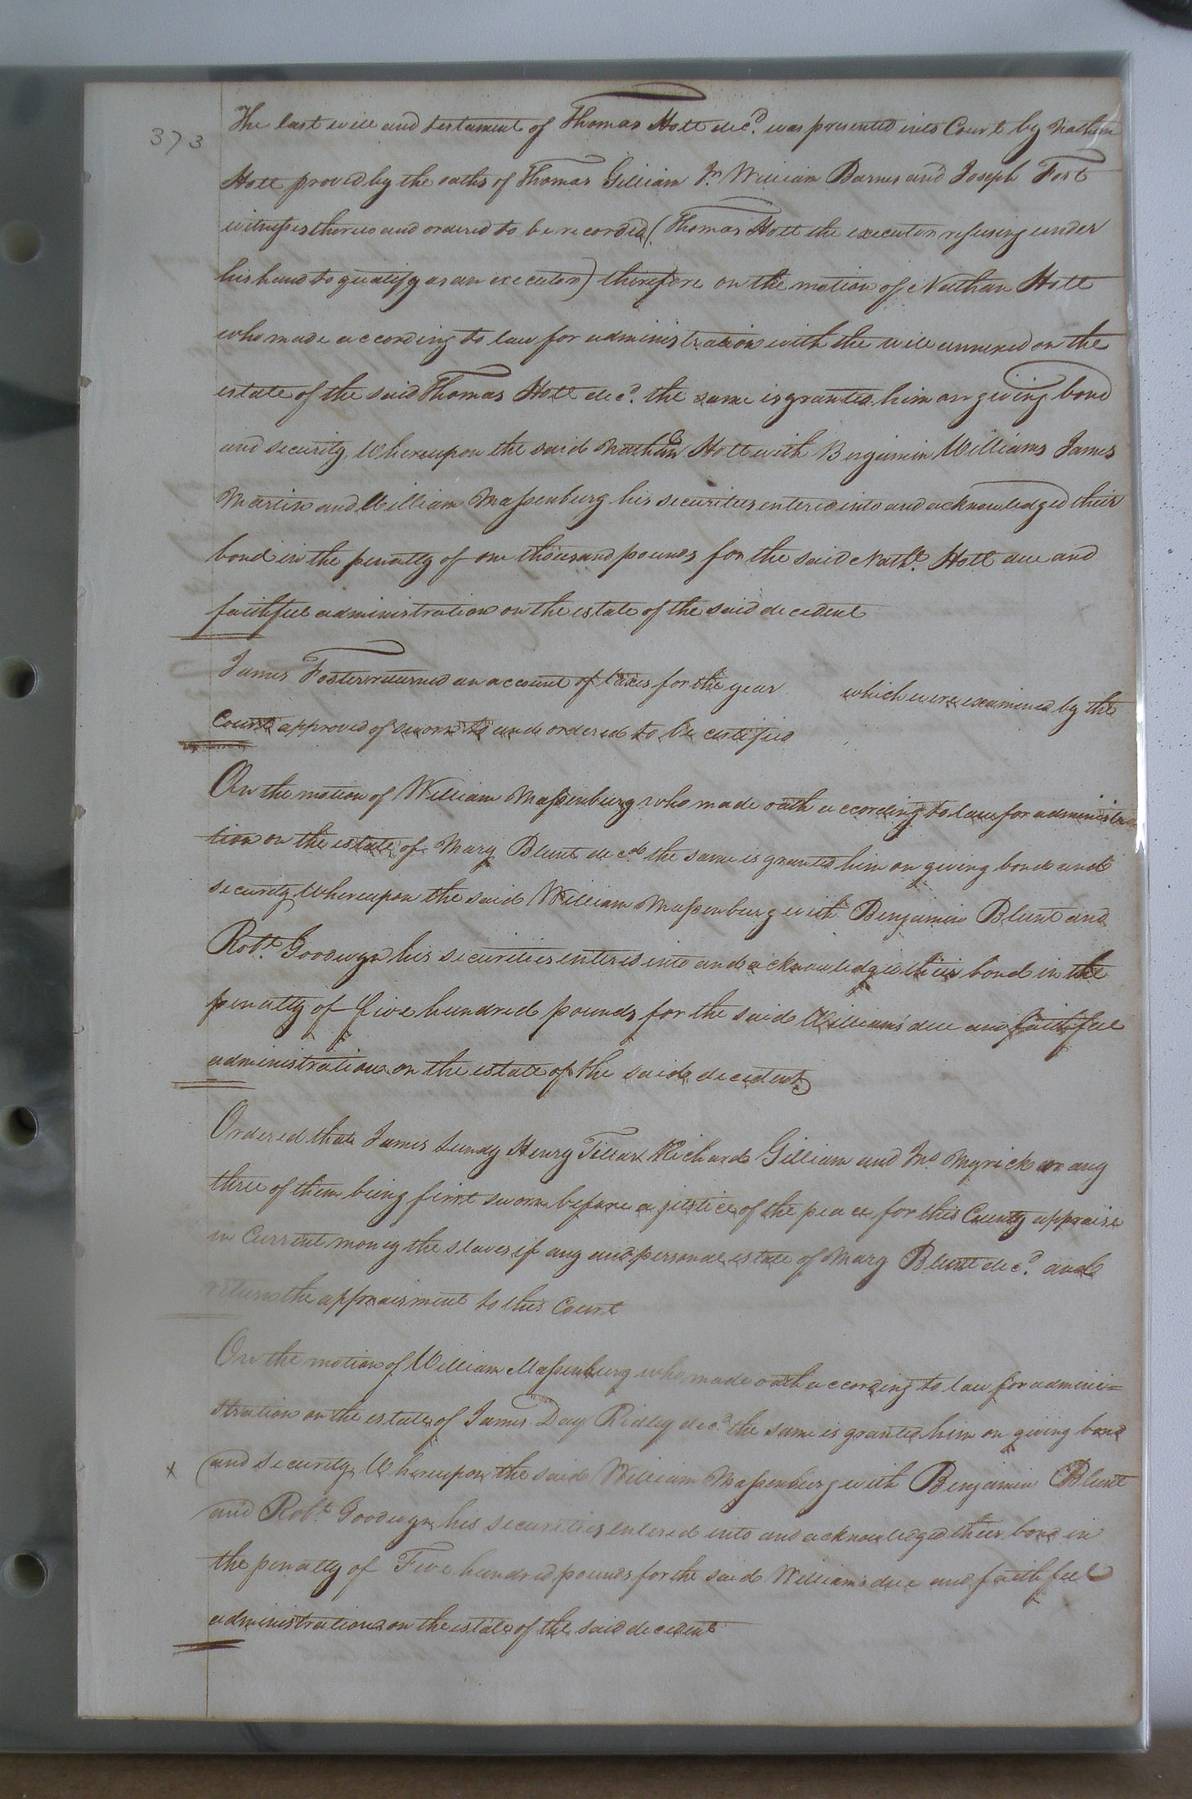 373
The last will and testament of Thomas Holt decd. was presented into Court by Nathan
Holt proved by the oaths of Thomas Gilliam Jr. William Barnes and Joseph Fort
witnesses thereto and ordered to be recorded (Thomas Holt the executor refusing under
his hand to qualify as an executor) therefore on the motion of Nathan Holt
who made according to law for administration with the will annexed on the
estate of the said Thomas Holt decd. the same is granted him on giving bond
and security Whereupon the said Nathan Holt with Benjamin Williams James
Martin and William Massenburg his securities entered into and acknowledged their
bond in the penalty of one thousand pounds for the said Nathl. Holt due and
faithful administration on the estate of the said decedent
James Foster returned an account of taxes for the year which were examined by the
Court approved of sworn to and ordered to be certified
On the motion of William Massenburg who made oath according to law for administra
tion on the estate of Mary Blunt decd. the same is granted him on giving bond and
security Whereupon the said William Massenburg with Benjamin Blunt and
Robt. Goodwyn his securities entered into and acknowledged their bond in the
penalty of five hundred pounds for the said William's due and faithful
administration on the estate of the said decedent
Ordered that James Henry Tillar Richard Gilliam and Jno. Myrick or any
three of them being first sworn before a justice of the peace for this County appraise
in Current money the slaves if any and personal estate of Mary Blunt decd. and
return the appraisment to this Court
On the motion of William Massenburg who made oath according to law for admini=
stration on the estate of James Day Ridley decd. the same is granted him on giving bond
x (and security Whereupon the said William Massenburg with Benjamin Blunt
and Robt. Goodwyn his securities entered into and acknowledged their bond in
the penalty of Five hundred pounds for the said William's due and faithful
administration on the estate of the said decedent